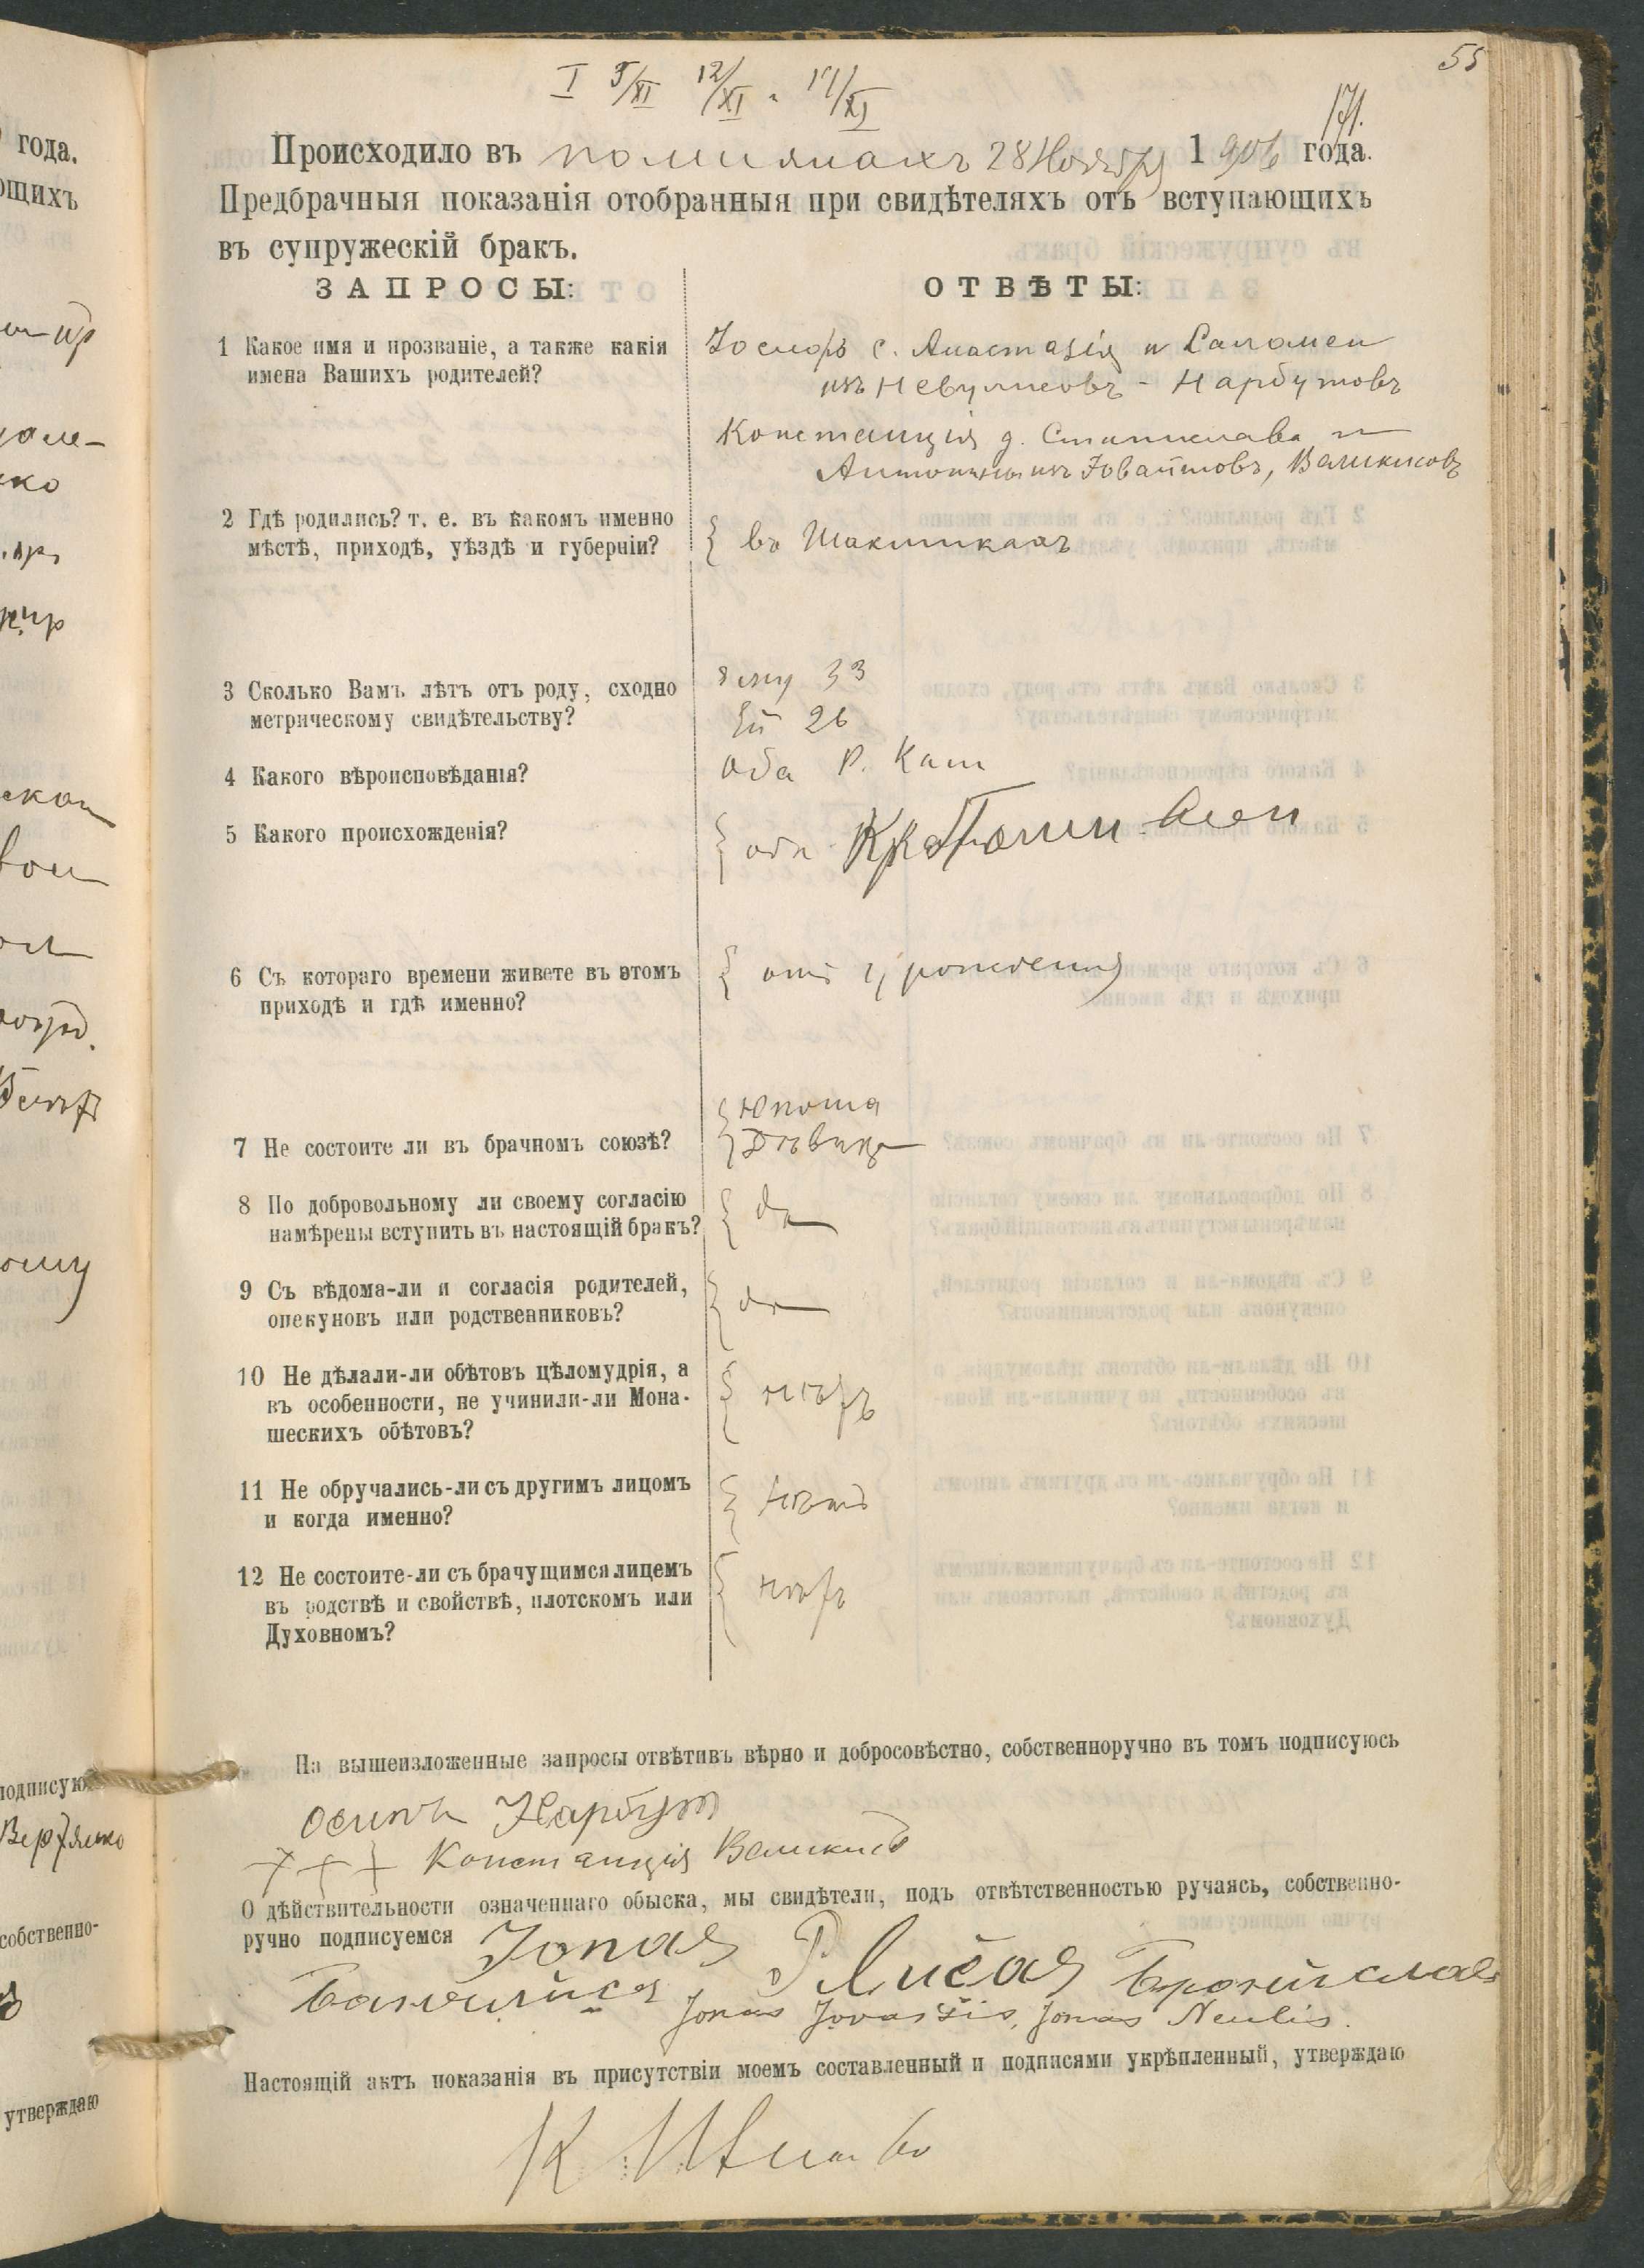 55
I 5/XI 12/XI 17/XI
171.
Происходило въ 28 Ноября 1906 года.
Предбрачныя показанія отобранныя при свидѣтеляхъ отъ вступающихъ
въ супружескій бракъ.
ЗАПРОСЫ: ОТВѢТЫ:
1 Какое имя и прозваніе, а также какія
имена Вашихъ родителей?
Іосифъ с. Анастазія и Саломеи
изъ Невулисовъ - Нарбутовъ
Констанція д. Станислава и
Антонины изъ Іовайшовъ, Великисовъ
2 Гдѣ родились? т. е. въ какомъ именно
мѣстѣ, приходѣ, уѣздѣ и губерніи?
въ Шакишкахъ
3 Сколько Вамъ лѣтъ отъ роду, сходно
метрическому свидѣтельству?
Ему 33
Ей 26
4 Какого вѣроисповѣданія?
Оба Р. Кат
5 Какого происхожденія?
оба
6 Съ котораго времени живете въ этомъ
приходѣ и гдѣ именно?
отъ урожденія
7 Не состоите ли въ брачномъ союзѣ?
Юноша
Дѣвица
8 По добровольному ли своему согласію
намѣрены вступить въ настоящій бракъ?
да
9 Съ вѣдома-ли и согласія родителей,
опекуновъ или родственниковъ?
да
10 Не дѣлали-ли обѣтовъ цѣломудрія, а
въ особенности, не учинили-ли Мона-
шескихъ обѣтовъ?
нѣтъ
11 Не обручались-ли съ другимъ лицомъ
и когда именно?
нѣтъ
12 Не состоите-ли съ брачущимся лицемъ
въ родствѣ и свойствѣ, плотскомъ или
Духовномъ?
нѣтъ
На вышеизложенные запросы отвѣтивъ вѣрно и добросовѣстно, собственноручно въ томъ подписуюсь
Осипъ Нарбут
+++ Констанція Великисъ
О дѣйствительности означеннаго обыска, мы свидѣтели, подъ отвѣтственностью ручаясь, собственно-
ручно подписуемся Jonas
Jonas Jovaišis, Jonas Neulis.
Настоящій актъ показанія въ присутствіи моемъ составленный и подписями укрѣпленный, утверждаю